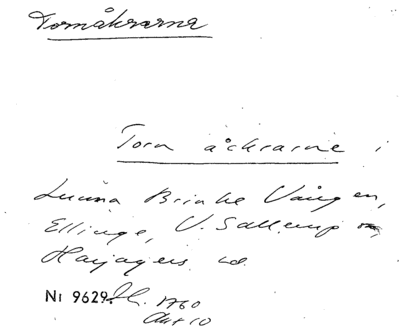 Tornåkrarna
Torn åckrarne i
Brinke Vången,
Ellinge, V. Sallerup
Harjagers hd.
Nr 9629. 1760
Akt 10